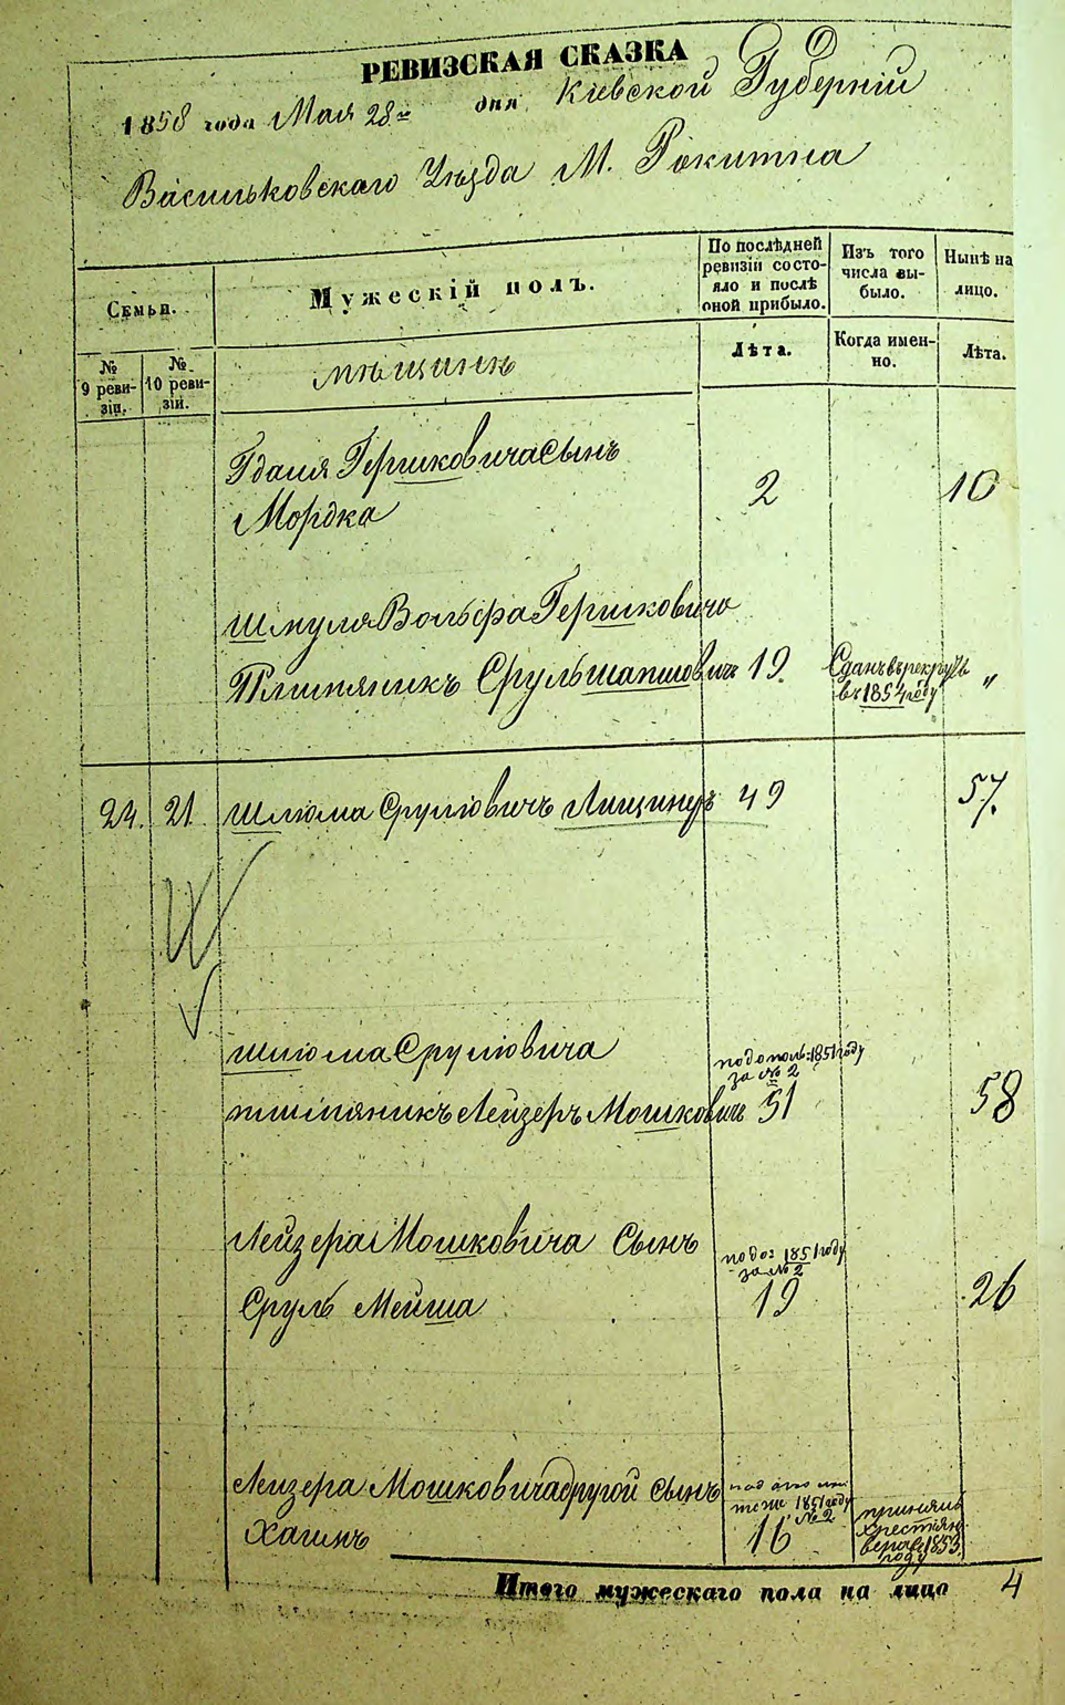 РЕВИЗСКАЯ СКАЗКА
1858 года Мая 28го дня Кіевской Губерніи
Васильковскаго Уѣзда М. Рокитна
Семьи.
Мужескій полъ.
По послѣдней ревизіи состо-
яло и послѣ оной прибыло.
Изъ того числа вы-
было.
Нынѣ на лицо.
№ 9 реви-
зіи.
№ 10 реви-
зіи.
мѣщанинъ
Лѣта.
Когда имен-
но.
Лѣта.
Гдаля Гершковича сынъ
Мордка 2 10
Шмуля Вольфа Гершковича
Племяникъ Сруль Шапшовичъ 19. Сданъ въ рекруты в 1854 году "
24. 21. Шлюма Срулювичъ Лищинеръ 49 57.
Шлюма Срулювича
племяникъ Лейзеръ Мошковичъ 51 58
по допол: 1851 году
за № 2
Лейзера Мошковича Сынъ
по до: 1851 году
за № 2
Сруль Мейша 19 26
Лейзера Мошковича другой Сынъ
Хаимъ 16
1851 году
№ 2
принялъ
христіян
веру въ 1853
году
Итого мужескаго пола на лицо 4